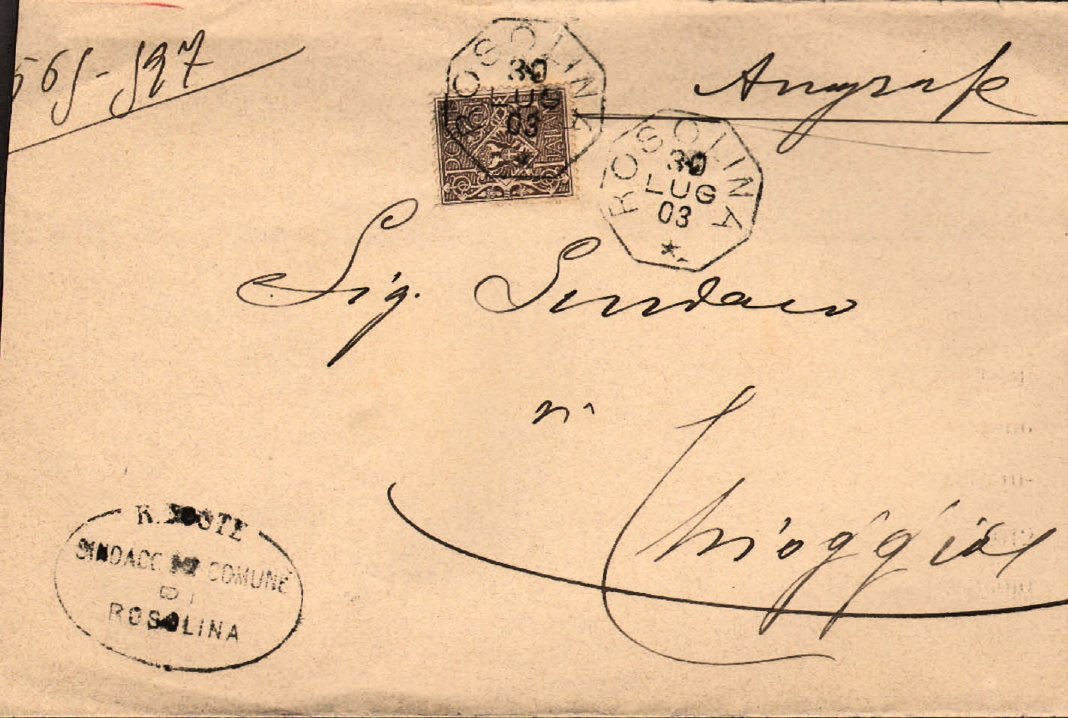 565-527
ROSOLINA
30
LUG
03
Anagrafe
ROSOLINA
30
LUG
03
Sig. Sindaco
di
Chioggia
R. POSTE
SINDACO DEL COMUNE
DI
ROSOLINA